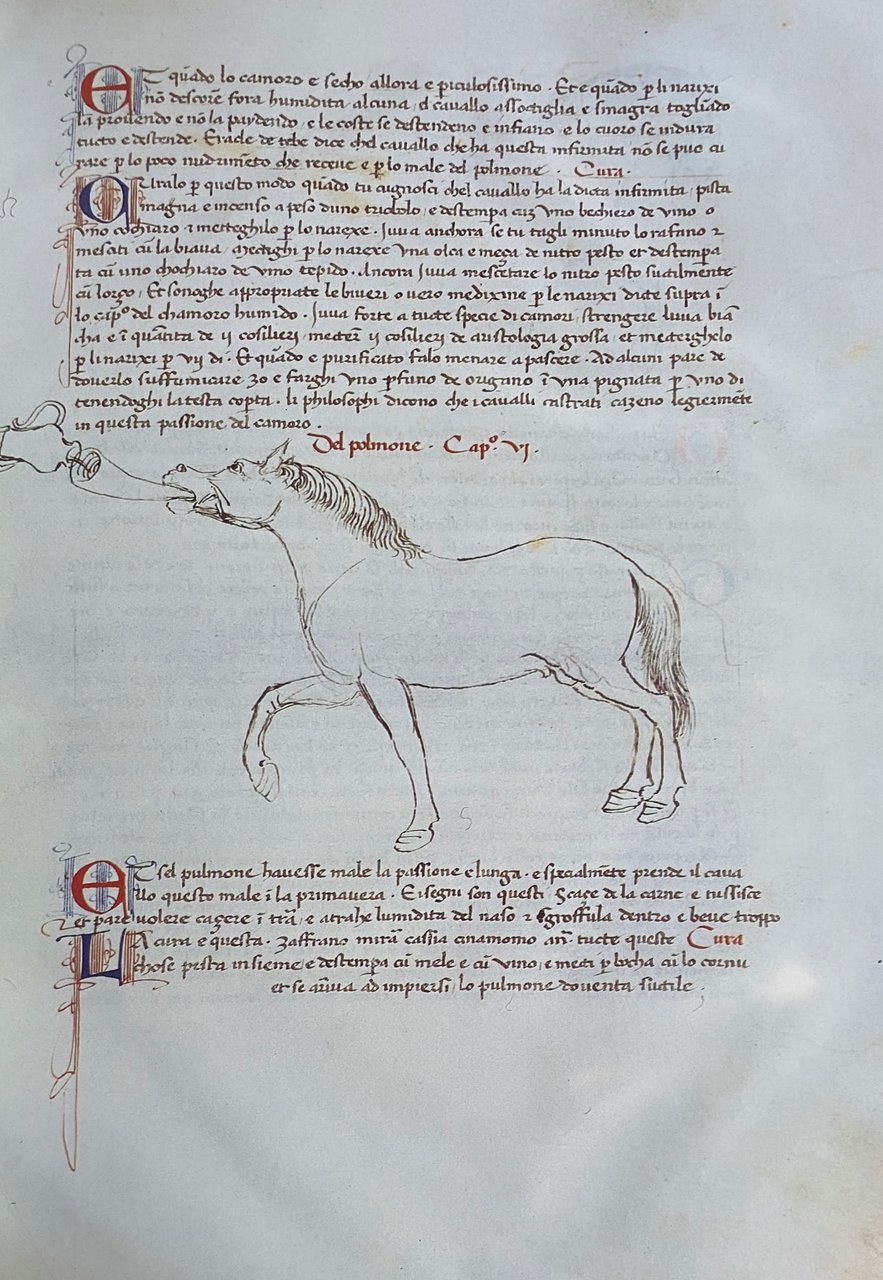 ET quãdo lo camoro e secho allora e piculosissimo. Et e quãdo p li narixi
nõ descore fora humidita alcuna, el cavallo assoctiglia e smagra togliãdo
la provendo e nõ la paydendo, e le coste se destendeno e infiano, e lo cuoro se indura
tucto e destende. Eracle de tebe dice chel cavallo che ha questa infirmita nõ se puo cu
rare p lo poco nudrimẽto che receve e p lo male del polmone. Cura.
Curalo p questo modo quãdo tu cugnosci chel cavallo ha la dicta infirmita, pista
magna e incenso a peso duno triobolo, e destempa cũ uno bechiero de vino o
uno cochiaro, et metteghilo p lo narexe. Juva anchora se tu tagli minuto lo rafano et
mescati cũ la biava, mectighi p lo narexe una olca e meça de nitro pesto et destempa
ta cũ uno chochiaro de vino tepido. Ancora juva mescẽtare lo nitro pesto sutilmẽnte
cũ lorço, Et sonoghe appropriate le biveri o vero medixine p le narixi dicte supra ĩ
lo capº del chamoro humido. Juva forte a tucte specie di camori, strengere luva biã
cha e ĩ quãtita de ii cosilieri, metter ii cosilieri de aristologia grossa, et mecterghelo
p li narixi p vij di. Et quãdo e purificato falo menare a pascere. Ad alcuni pare de
doverlo suffumicare, zo e farghi uno pfuno de origino ĩ una pignata p uno di
tenendoghi la testa copta. li philosophi dicono che i cavalli castrati cazeno legiermẽte
in questa passione del camoro.
Del polmone. Capº. VI.
ET sel pulmone havesse male la passione e lunga. e specialmẽte prende il cava
llo questo male ĩ la primavera. E i segni son questi, scaçe de la carne, e tussisce
et pare volere caçere ĩ trã, e atrahe lumidita del naso et sgroffula dentro e beve troppo
LA cura e questa. Zaffrano mirã cassia cinamomo anª. tucte queste Cura
chose pista insieme, e destempa cũ mele e cũ vino, e meti p bocha cũ lo cornu
et se ariva ad impiersi, lo pulmone doventa sutile.